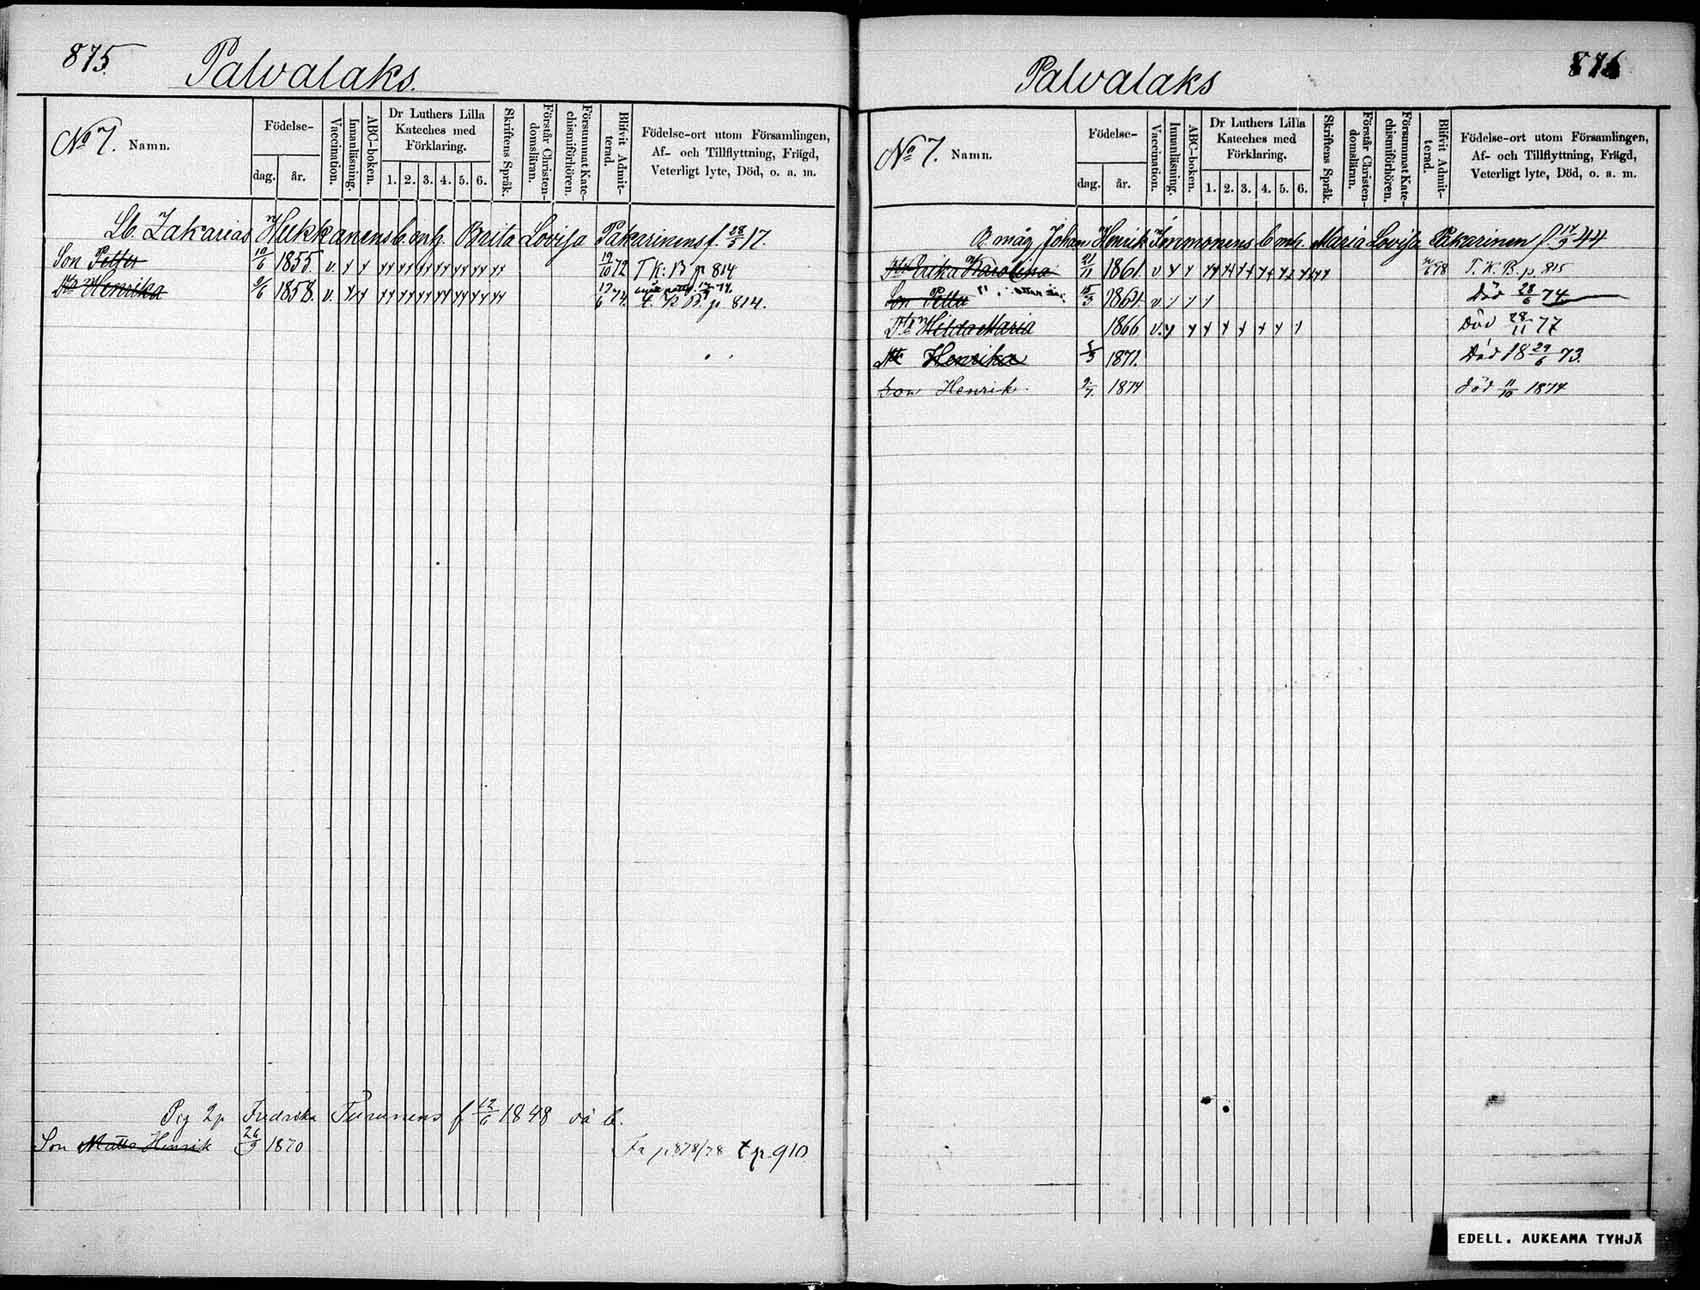 875.
Palvalaks.
No 7. Namn.
Födelse-
dag. år.
Vaccination.
Innanläsning.
ABC-boken.
Dr Luthers Lilla
Kateches med
Förklaring.
1. 2. 3. 4. 5. 6.
Skriftens Språk.
Förstår Christen-
domsläran.
Försummat Kate-
chismiförhören.
Blifvit Admit-
terad.
Födelse-ort utom Församlingen,
Af- och Tillflyttning, Frägd,
Veterligt lyte, Död, o. a. m.
Lb. Zakarias Hukkanens b. enk. Brita Lovisa Pakarinens f. 28/5 17.
Son Petter 10/6 1855. v. 19/10 72 T. K. B. p 814
Dtr Henrika 9/6 1858. v. 17/6 74. T. K. B. p 814.
Pig Fredrika Turunens f 12/6 1848 oä b.
Son Matts Henrik 26/9 1870 Fr p 878/78 t p. 910
876
Palvalaks
No 7. Namn.
Födelse-
dag. år.
Vaccination.
Innanläsning.
ABC-boken.
Dr Luthers Lilla
Kateches med
Förklaring.
1. 2. 3. 4. 5. 6.
Skriftens Språk.
Förstår Christen-
domsläran.
Försummat Kate-
chismiförhören.
Blifvit Admit-
terad.
Födelse-ort utom Församlingen,
Af- och Tillflyttning, Frägd,
Veterligt lyte, Död, o. a. m.
måg Johan Henrik Immonens b. enk. Maria Lovisa Pakarinen f. 17/9 44
Dtr Erika Karolina 21/11 1861. v T. K. B. p. 815
Son Petter 15/3 1864 v. Död 28/6 74
Dtr Hilda Maria 1866 v. Död 28/11 77
Dtr Henrika 5/3 1871. Död 18 29/6 73.
Son Henrik. 9/7. 1874 död 11/10 1874
EDELL. AUKEAMA TYHJÄ